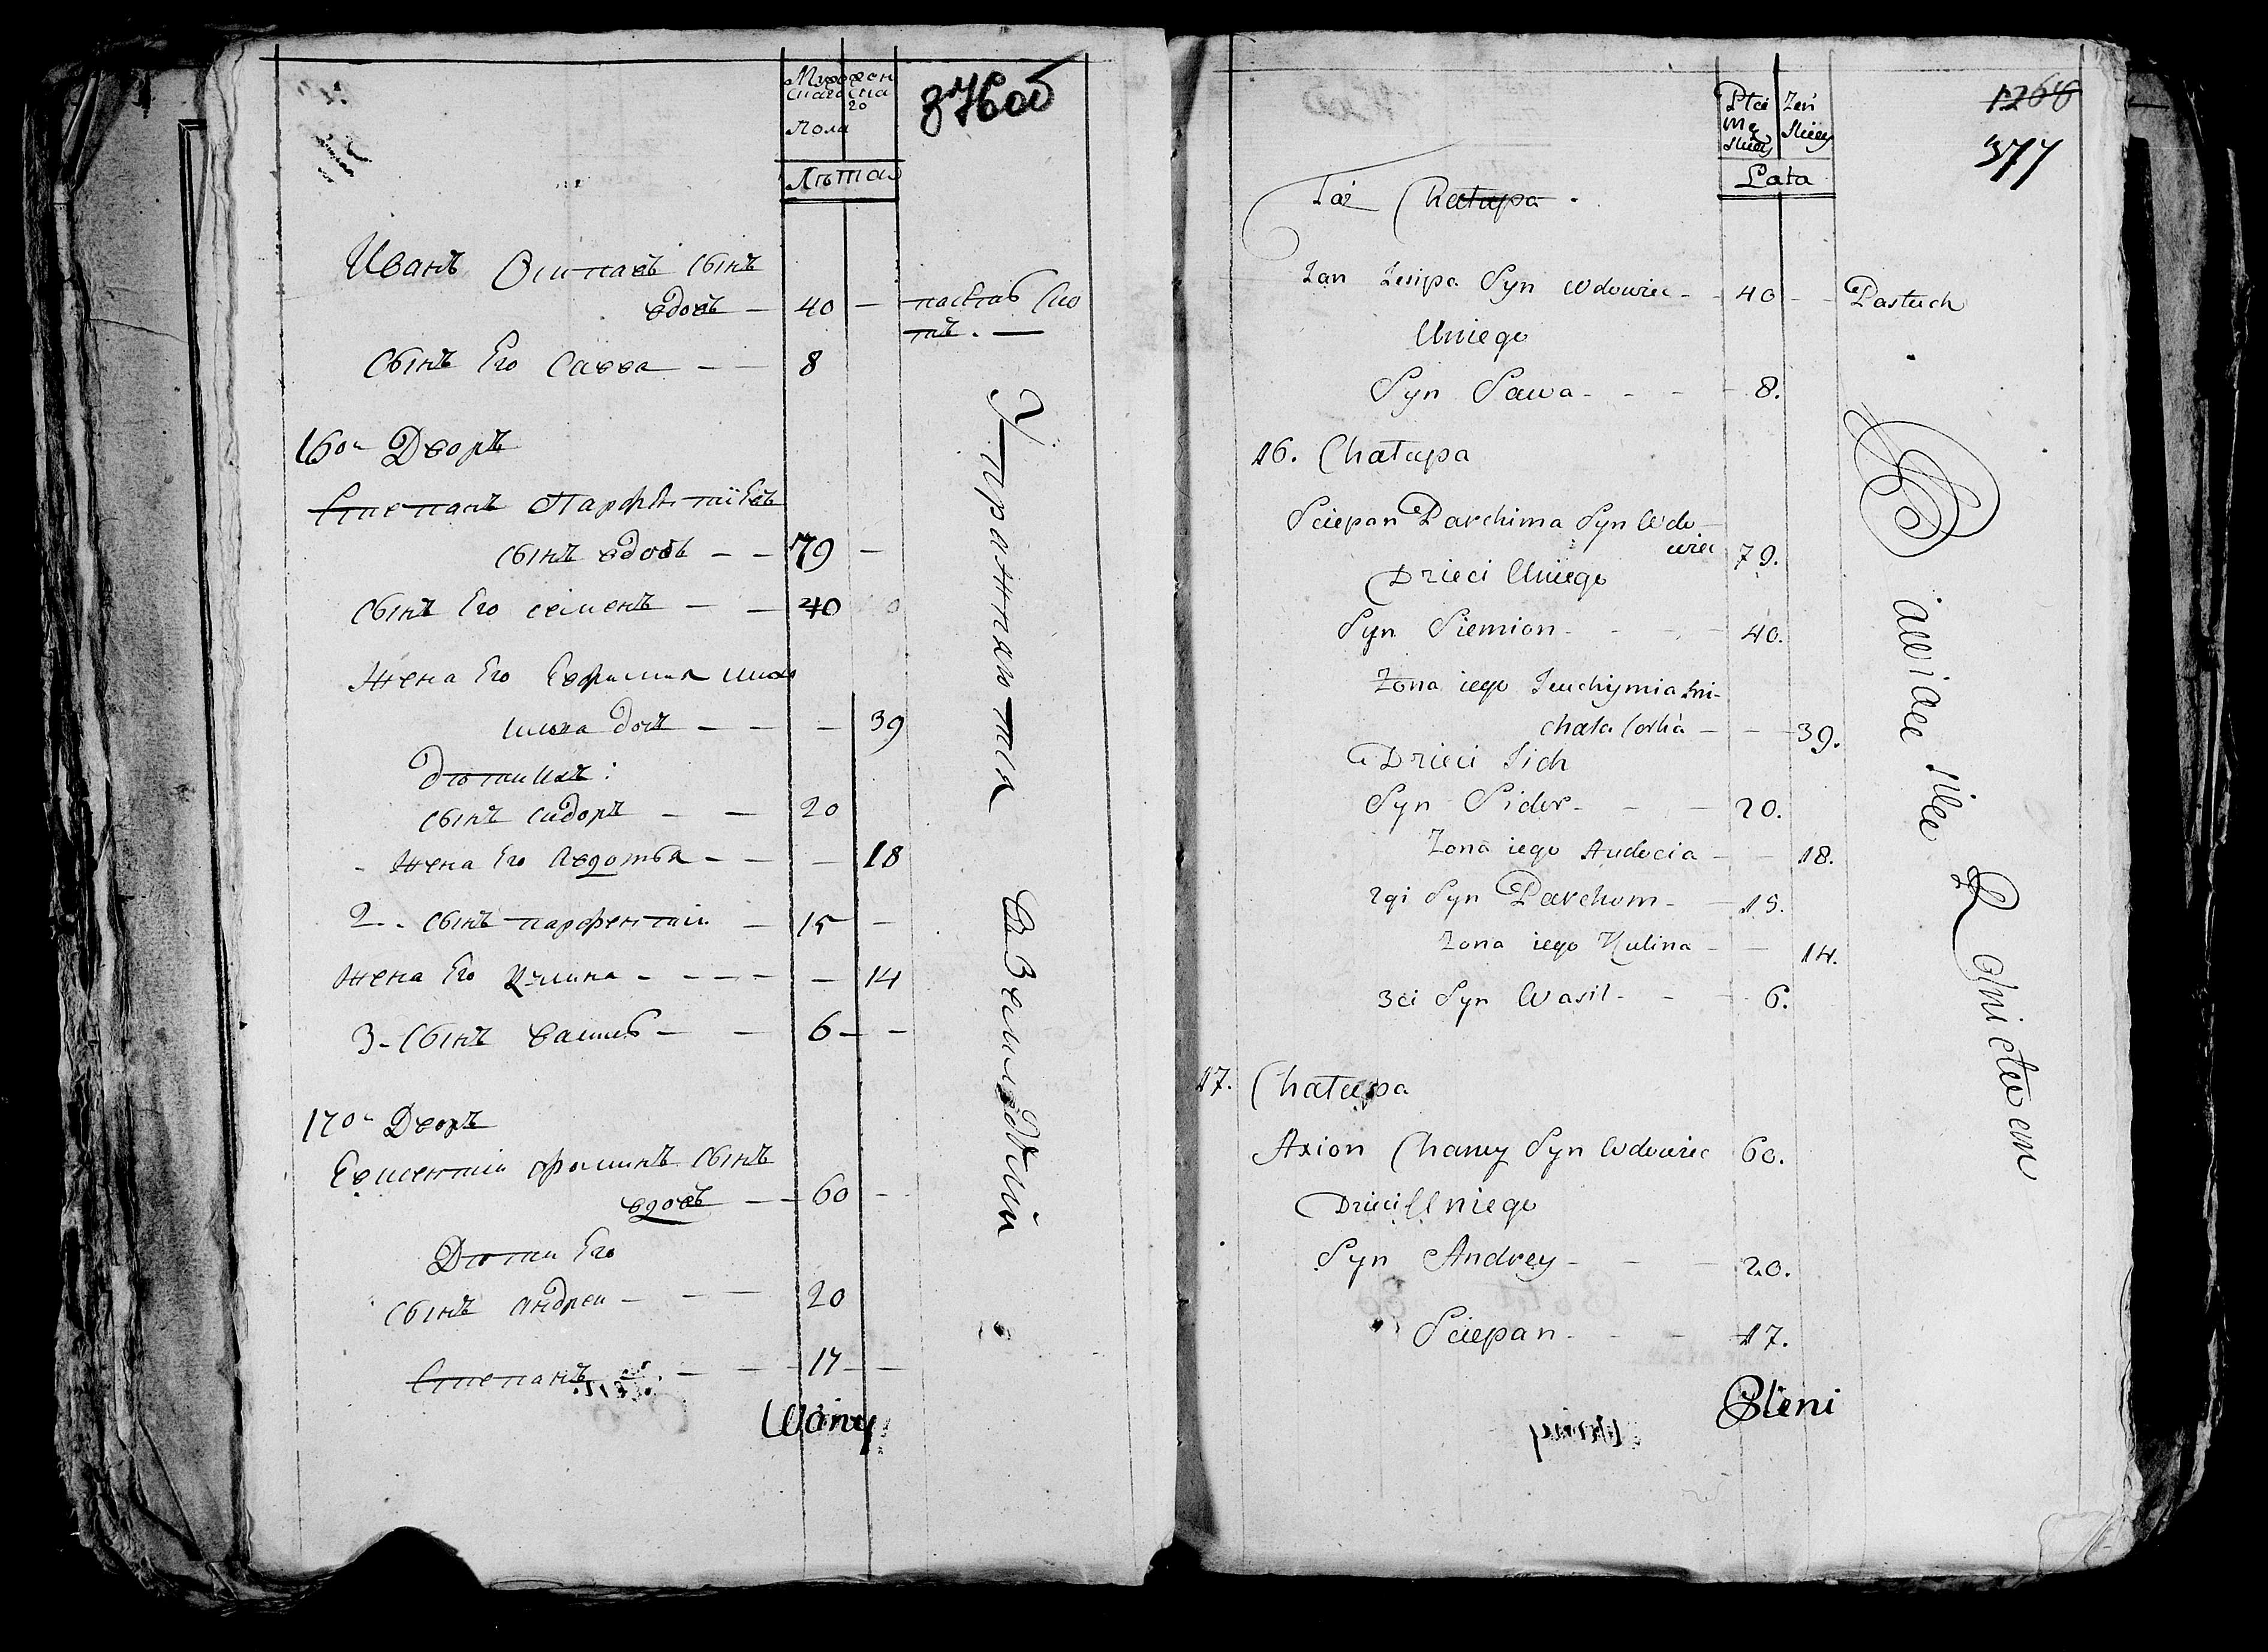 Муж
скаго
жен
ска
го
Пола
Лѣта
376об
Иванъ Осиповъ сынъ
вдовъ — 40 — пастъ ско
тъ. —
Сынъ Его Савва — — 8
16й Дворъ
Степанъ Парфентіевъ
сынъ вдовъ — — 79 —
Сынъ Его семенъ — — 40
Жена Его Евфимия
дочь — — — 39
дѣти ихъ:
сынъ сидоръ — — 20
Жена Его Авдотья — — — 18
2. сынъ парфентій — 15 —
Жена Его Кулина — — — — — 14
3 - Сынъ василь — — 6 — —
17й Дворъ
Авксентій фоминъ Сынъ
вдовъ — — 60 —
Дѣти Его
Сынъ андреи — — — 20
Степанъ — — — 17 —
Упражняются в земледѣлии
Płci
Mę
skiey
Żeń
skiey
Lata
1266
377
Taż Chałupa.
Jan Jesipa Syn Wdowiec - - 40 - - Pastuch
Uniego
Syn Sawa - - - - 8.
16. Chałupa
Sciepan Parchima Syn Wdo-
wiec 79.
Dzieci Uniego
Syn Siemion - - - 40.
Żona iego Jeuchymia Mi-
chała Corka - - - 39.
Dzieci Jich
Syn Sidor - - - 20.
Żona iego Audocia - - 18.
2gi Syn Parchom - - 15.
Żona iego Kulina - - 14.
3ci Syn Wasil - - - 6.
17. Chałupa
Axion Chamy Syn Wdowiec 60.
Dzieci Uniego
Syn Andrey - - - 20.
Sciepan - - - 17.
Bawiąca się Rolnictwem